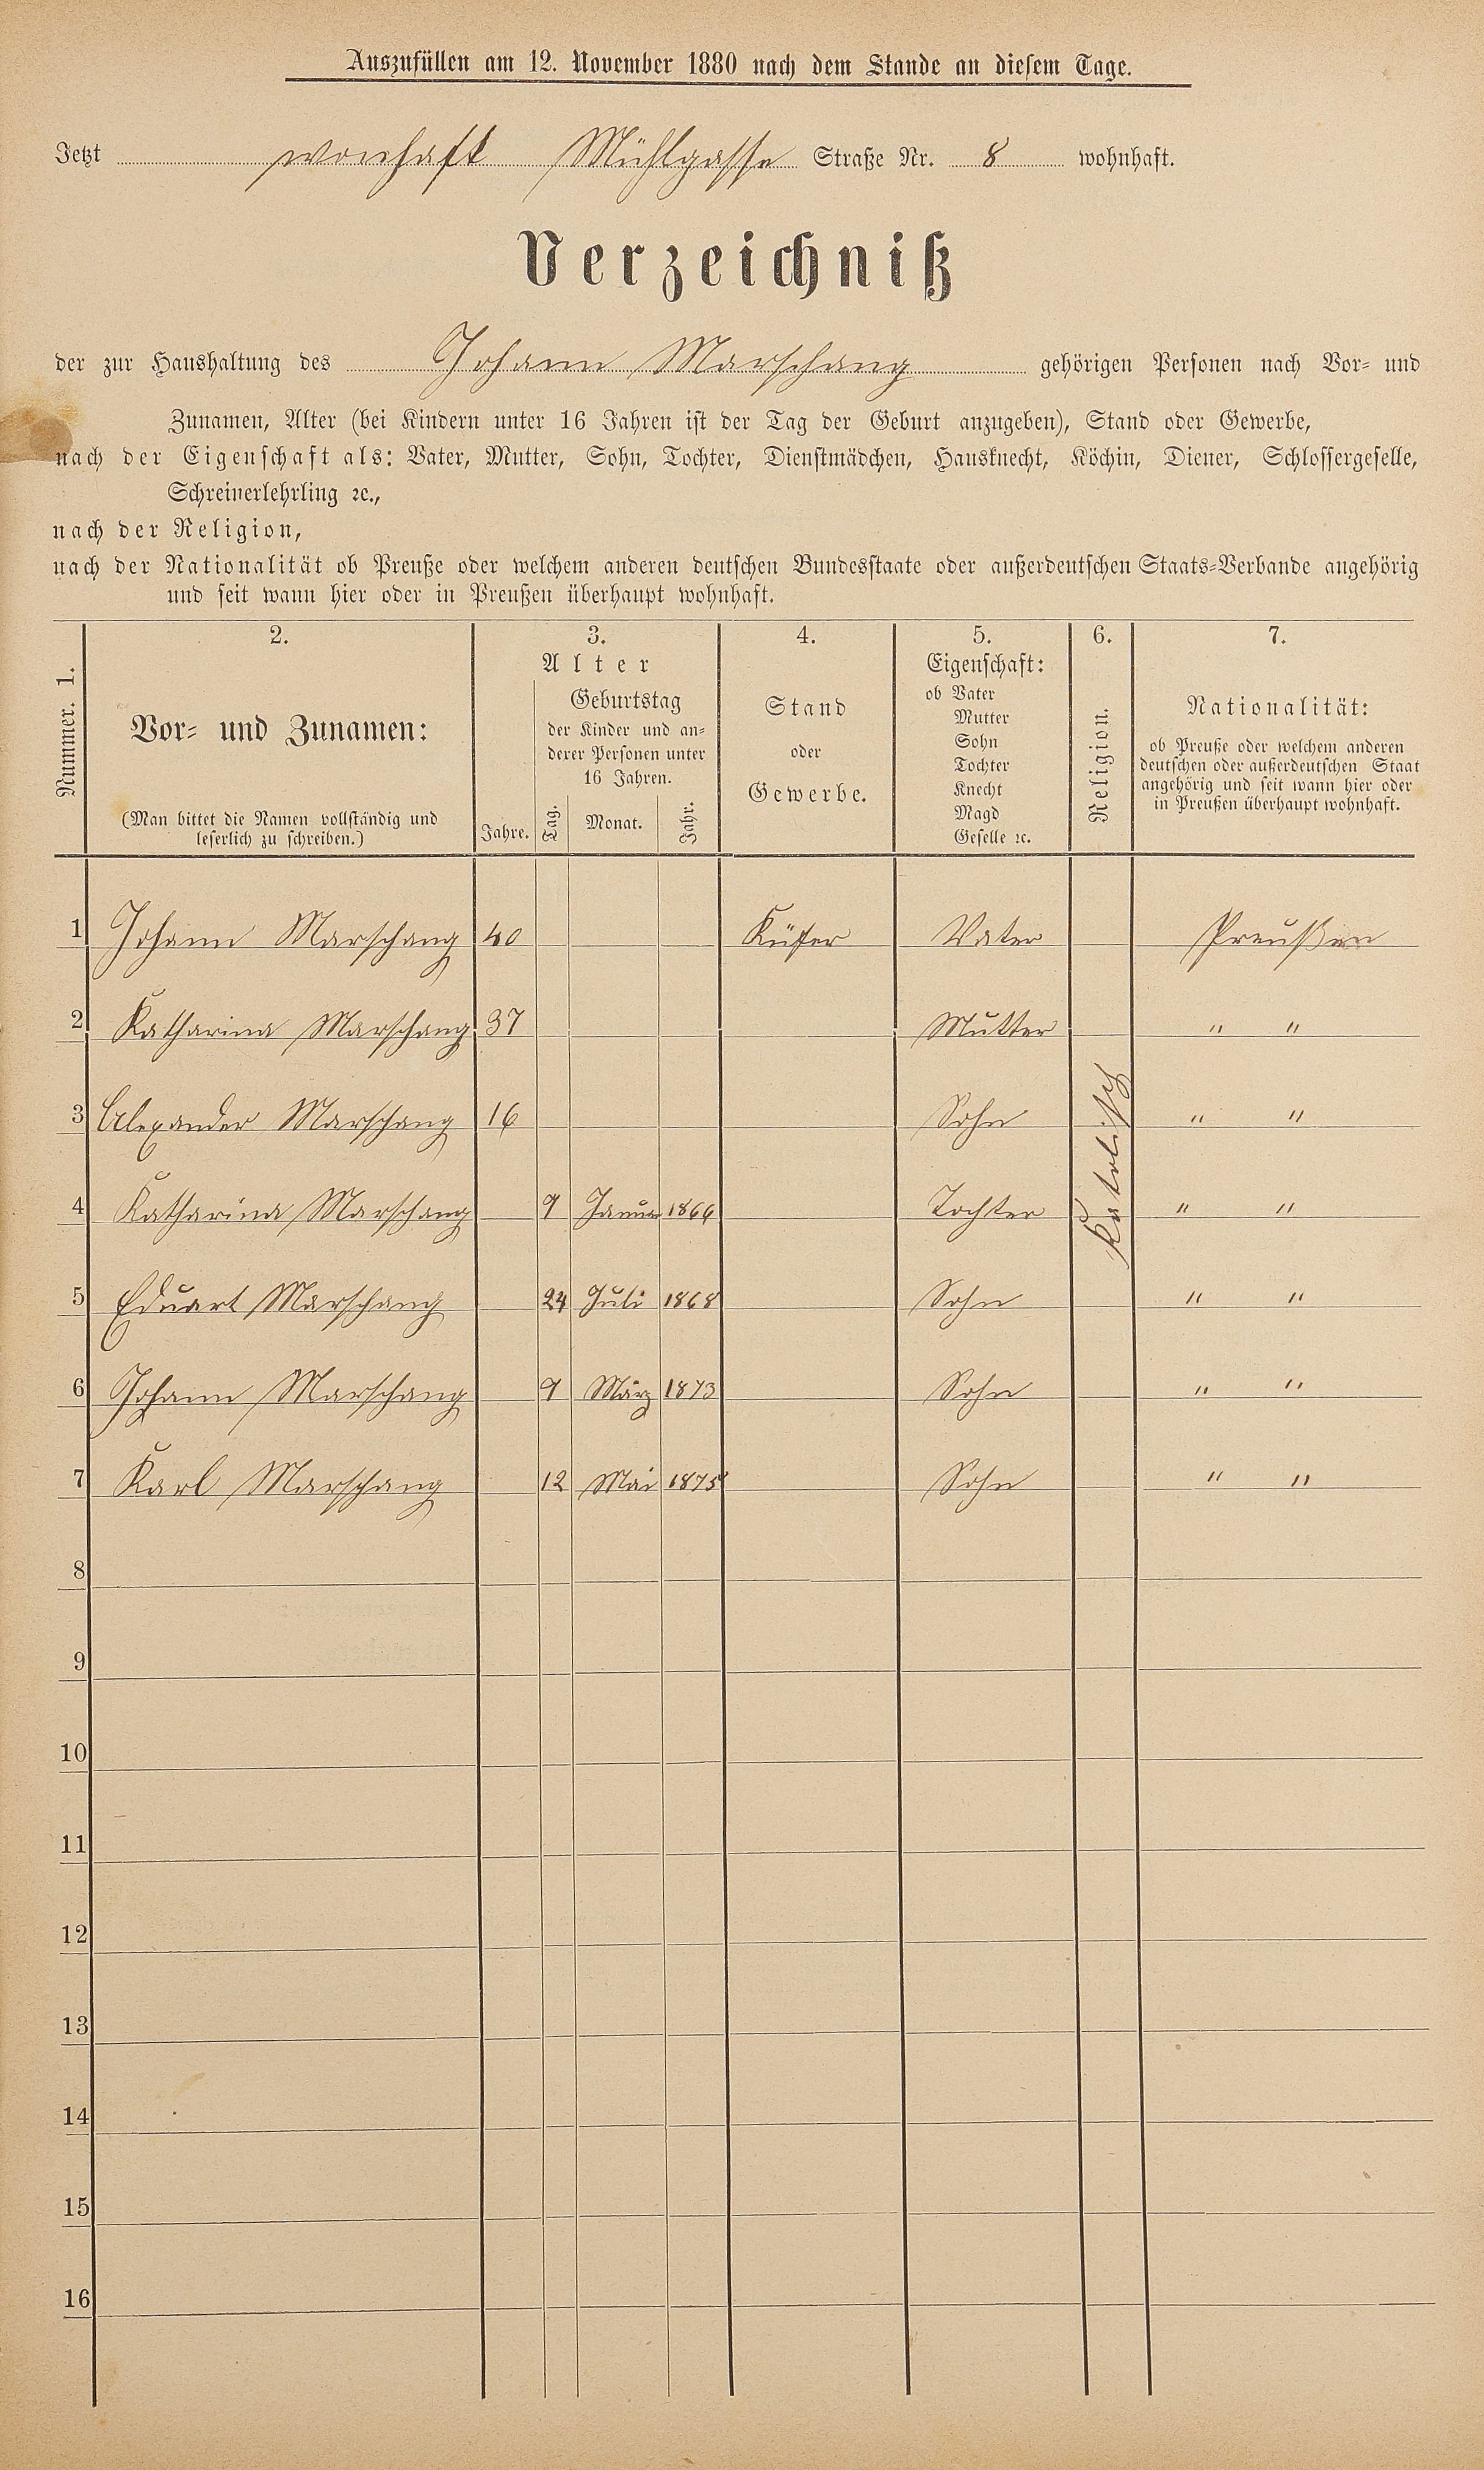 Auszufüllen am 12. November 1880 nach dem Stande an diesem Tage.
Jetzt wonhaft Mühlgasse Straße Nr. 8 wohnhaft.
Verzeichniß
der zur Haushaltung des Johann Marschang gehörigen Personen nach Vor- und
Zunamen, Alter (bei Kindern unter 16 Jahren ist der Tag der Geburt anzugeben), Stand oder Gewerbe,
nach der Eigenschaft als: Vater, Mutter, Sohn, Tochter, Dienstmädchen, Hausknecht, Köchin, Diener, Schlossergeselle,
Schreinerlehrling ꝛc.,
nach der Religion,
nach der Nationalität ob Preuße oder welchem anderen deutschen Bundesstaate oder außerdeutschen Staats-Verbande angehörig
und seit wann hier oder in Preußen überhaupt wohnhaft.
Nummer. 1.
2.
Vor- und Zunamen:
(Man bittet die Namen vollständig und
leserlich zu schreiben.)
3.
Alter
Jahre.
Geburtstag
der Kinder und an-
derer Personen unter
16 Jahren.
Tag. Monat. Jahr.
4.
Stand
oder
Gewerbe.
5.
Eigenschaft:
ob Vater
Mutter
Sohn
Tochter
Knecht
Magd
Geselle ꝛc.
6.
Religion.
7.
Nationalität:
ob Preuße oder welchem anderen
deutschen oder außerdeutschen Staat
angehörig und seit wann hier oder
in Preußen überhaupt wohnhaft.
1 Johann Marschang 40 Küfer Vater Preußen
2 Katharina Marschang 37 Mutter " "
3 Alexander Marschang 16 Sohn " "
Katolisch
4 Katharina Marschang 9 Januar 1866 Tochter " "
5 Eduart Marschang 24 Juli 1868 Sohn " "
6 Johann Marschang 9 März 1873 Sohn " "
7 Karl Marschang 12 Mai 1875 Sohn " "
8
9
10
11
12
13
14
15
16